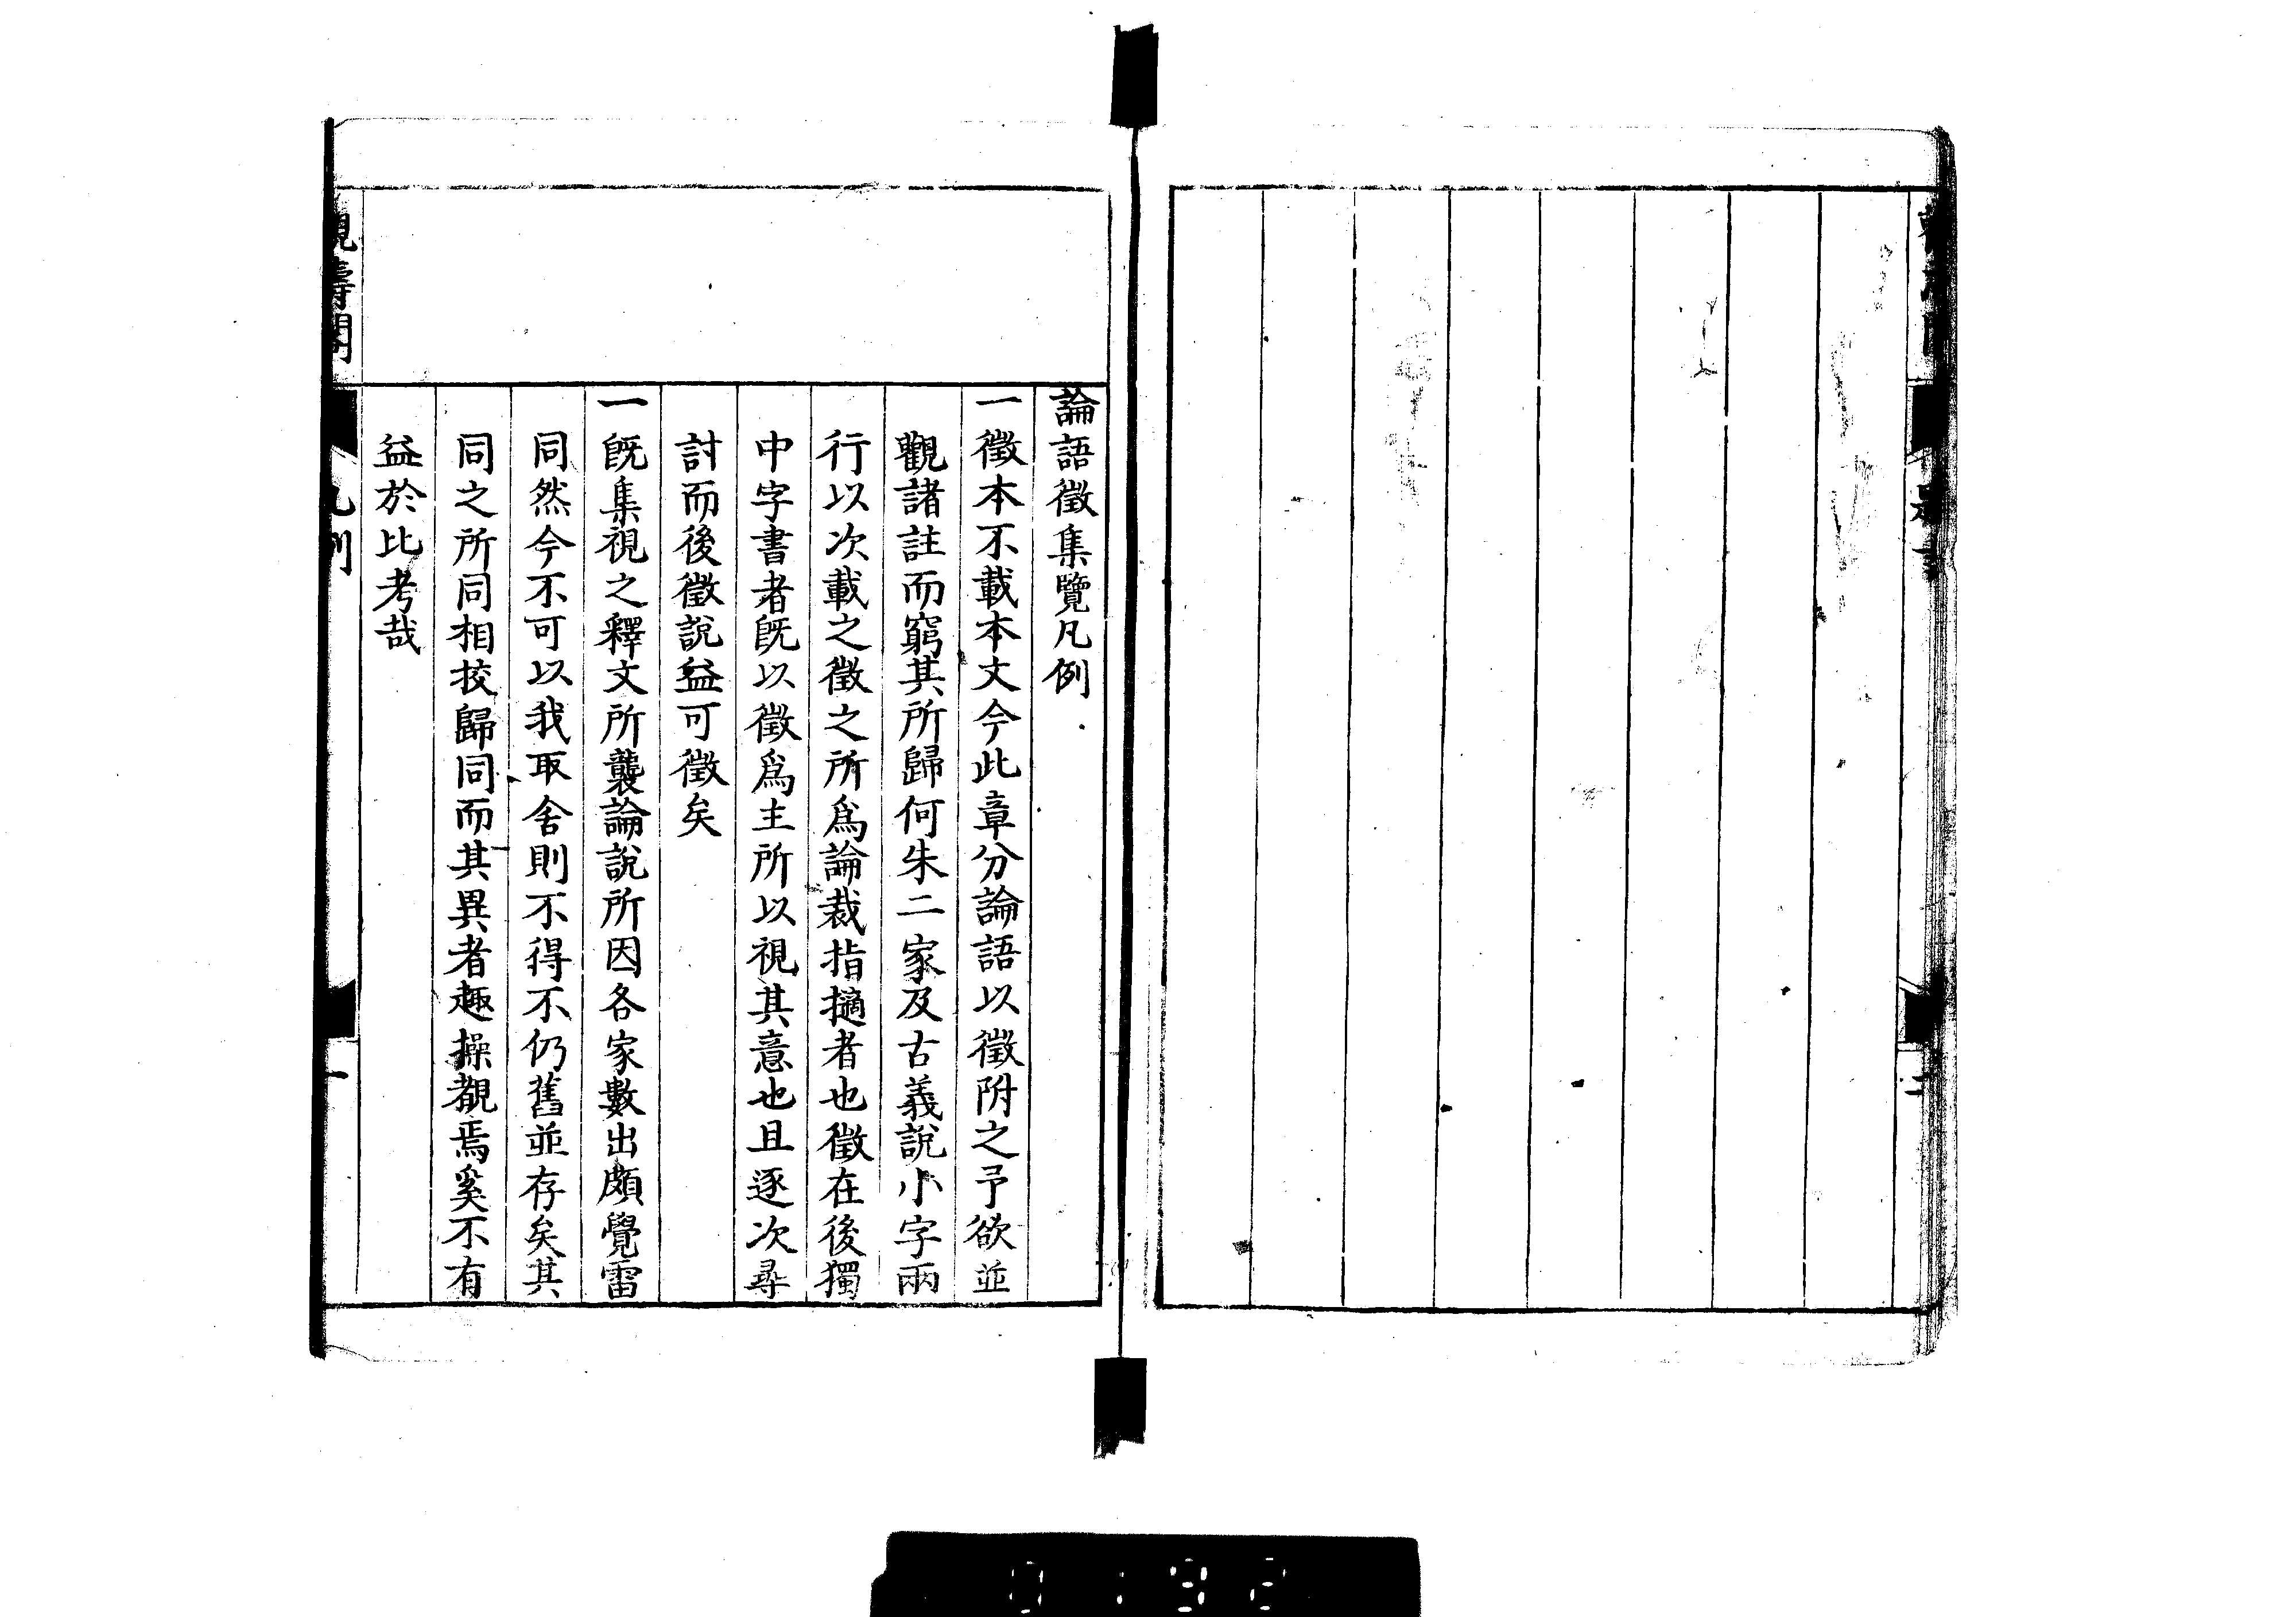 論語徵集覽凡例
一徵本不載本文今此章分論語以徵附之予欲並
觀諸註而窮其所歸何朱二家及古義說小字兩
行以次載之徵之所爲論裁指擿者也徵在後獨
中字書者旣以徵爲主所以視其意也且逐次尋
討而後徵說益可徵矣
一旣集視之釋文所襲論說所因各家數出頗覺雷
同然今不可以我取舍則不得不仍舊並存矣其
同之所同相挍歸同而其異者趣操覩焉奚不有
益於比考哉
觀濤閣
凡例
一